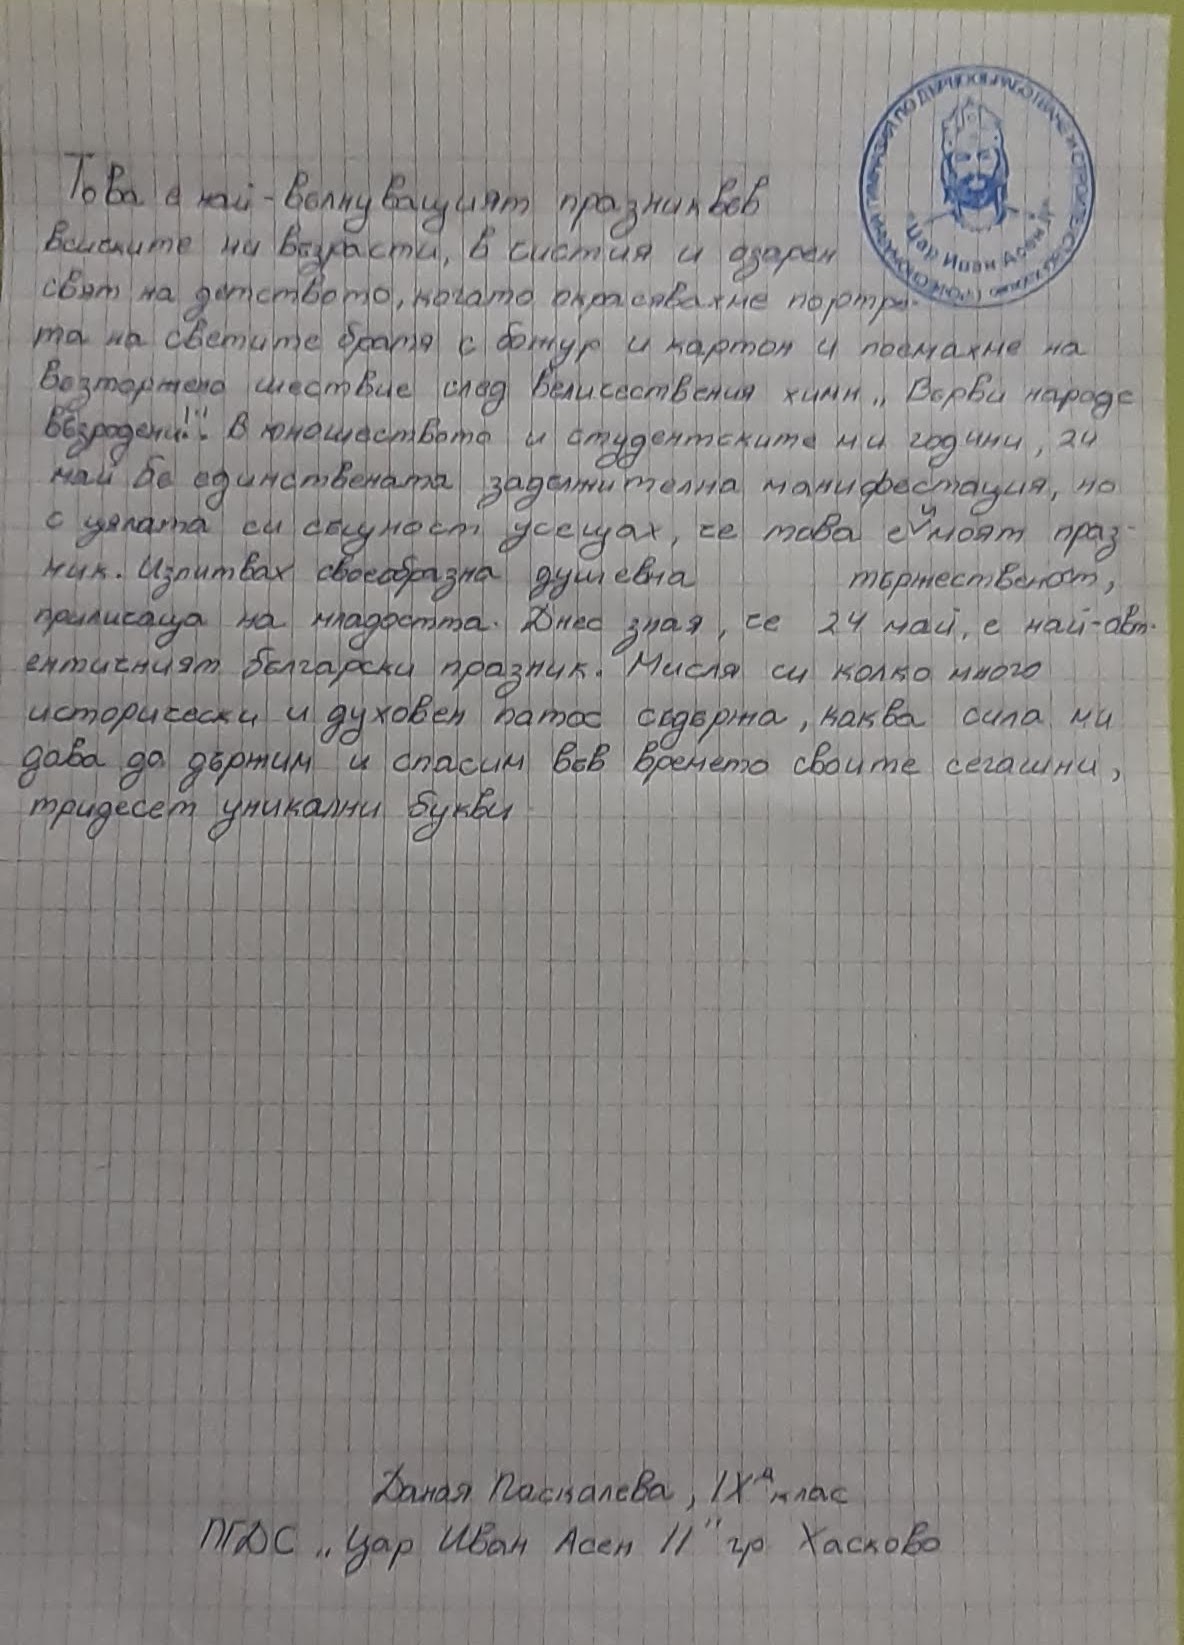 Това е най-вълнуващият празник във
всичките ни възрасти, в чистия и озарен
свят на детството, когато окрасявахме портре-
та на светите братя с божур и картон и поемахме на
възторжено шествие след величествения химн „Върви народе
възродени!“. В юношеството и студентските ми години, 24
май бе единствената задължителна манифестация, но
с цялата си същност усещах, че това е и моят праз-
ник. Изпитвах своеобразна душевна тържественост,
приличаща на младостта. Днес зная, че 24 май, е най-авт-
ентичният български празник. Мисля си колко много
исторически и духовен патос съдържа, каква сила ни
дава да държим и спасим във времето своите сегашни,
тридесет уникални букви
Даная Паскалева, IXд клас
ПГДС „Цар Иван Асен II" гр Хасково
ПО ДЪРВООБРАБОТВАНЕ И СТРОИТЕЛСТВО
"Цар Иван Асен II"